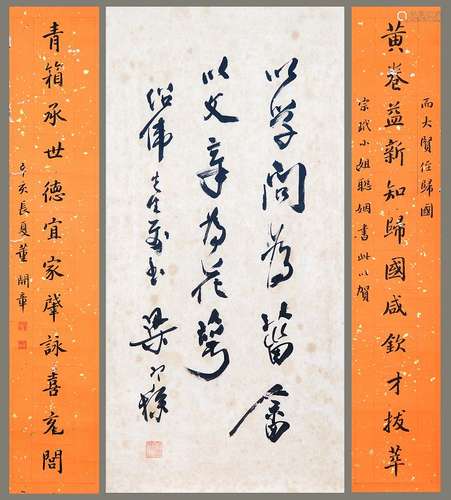 而大賢侄歸國
黄卷益新知歸國咸欽才拔萃
小姐聯姻書此以賀
以学問为菑畬
以文章为花萼
偉先生
梁寒操
青箱承世德宜家肇詠喜充閭
辛亥長夏董開章